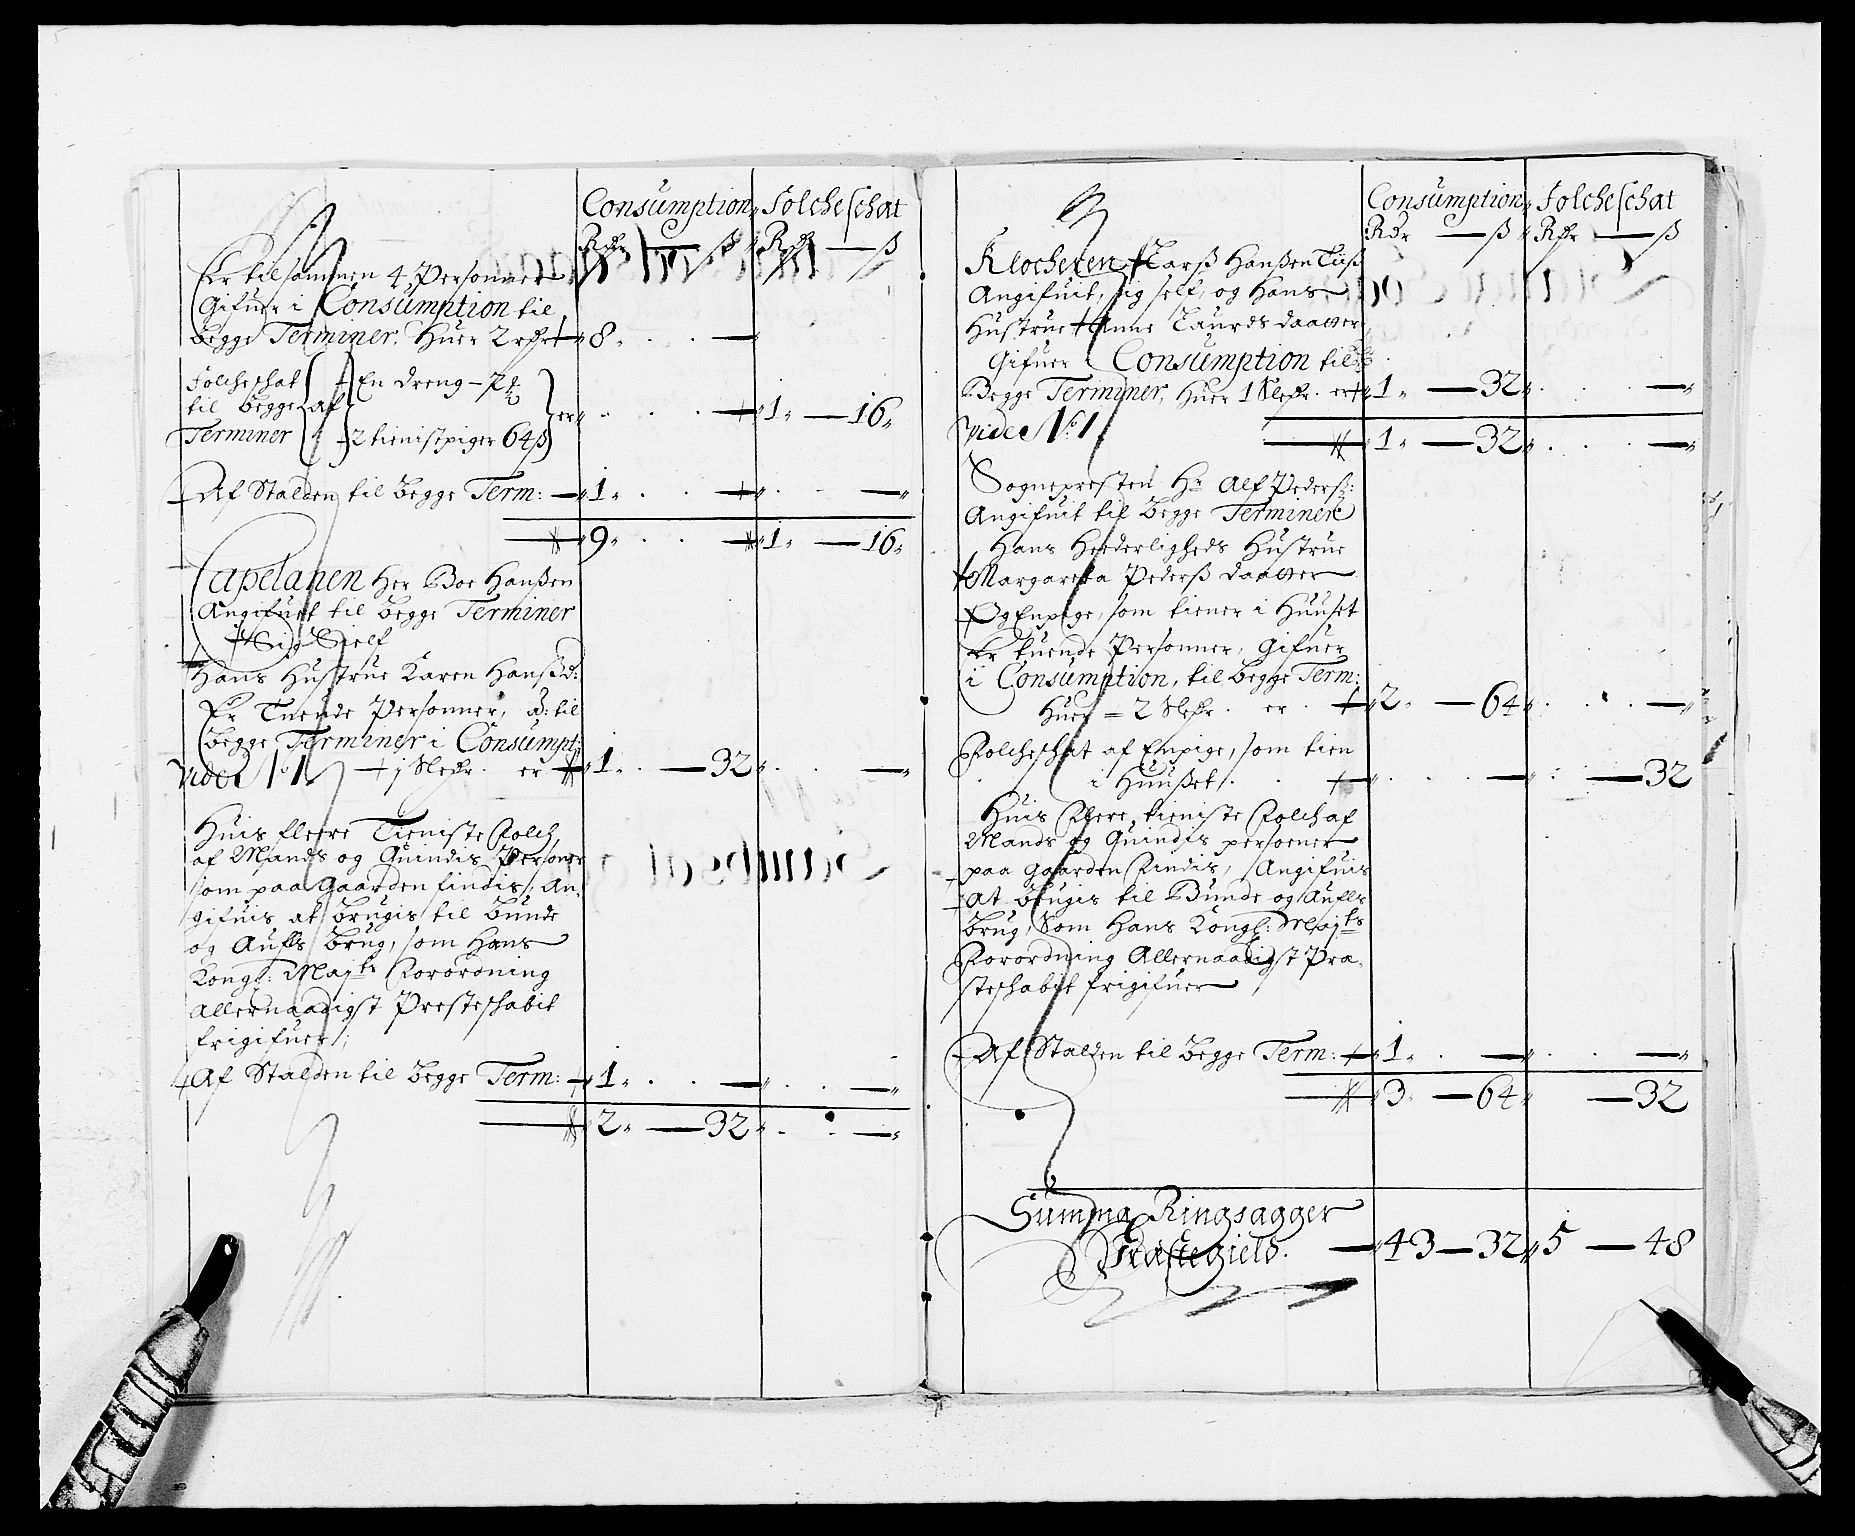 Consumption Folcheschat
Rdr — ß Rdr — ß
Er tilsammen 4 Personner
Gifuer i Consumption til
begge Terminer, Huer 2 rdr 8
Folcheschat En dreng
til begge af er 1 — 16
Terminer 2 tienistpiger 64 ß
Af Stalden til begge Term: 1
9 1 — 16
Capelanen Her Boe Hanßen
Angifuet til begge Terminer
Sig Sielf
Hans Hustrue Karen Hanßd:
Er Tuende Personner, til
begge Terminer i Consumpt:
Videe No 1 er 1 — 32
Huis fleere Tieniste Folch
af Mands og Quindis Personer
som paa gaarden findis, An-
gifuis at brugis til bunde
og Aufls brug, som Hans
Kongl: Majts Forordning
Allernaadigst Presteschabit
frigifuer;
Af Stalden til begge Term: 1
2 — 32
Consumption Folcheschat
Rdr — ß Rdr — ß
Klocheren Larß Hanßen
Angifuit, sig self, og Hans
Hustrue Anne Laurds daatter
Gifuer Consumption til
Begge Terminer, huer 1 Sledr. er 1 — 32
Videe No 1 1 — 32
Sognepresten Hr Alf Pederß:
Angifuit til begge Terminer
Hans Hæderligheds Hustrue
Margareta Pederß daatter
Og En pige, som tiener i Huuset
Er tuende Personner, Gifuer
i Consumption, til begge Term:
Huer 2 Sledr. er 2 — 64
Folcheschat af En pige, som tien
i Huußet 32
Huis Flere tieniste Folch af
Mands og Quindis persoener
paa gaarden Findis, Angifuis
At brugis til Bunde og Aufls
Brug, Som Hans Kongl: Majts
Forordning Allernaadigst Præ-
steschabit frigifuer
Af Stalden til begge Term: 1
3 — 64 — 32
Summa Ringsagger
Præstegield. 43 — 32 5 — 48